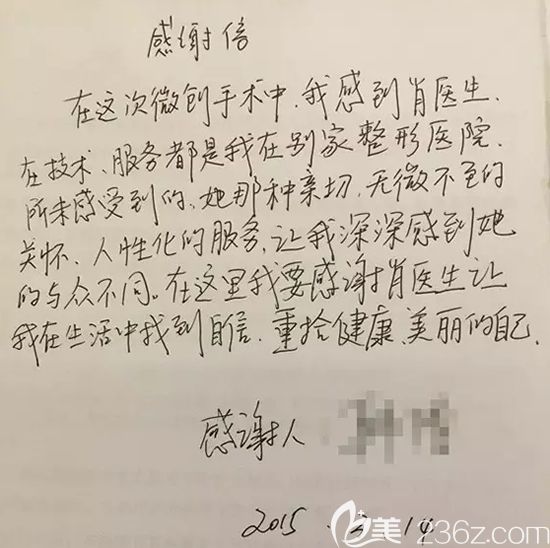 感谢信
在这次微创手术中，我感到肖医生，
在技术、服务都是我在别家整形医院，
所未感受到的，她那种亲切，无微不至的
关怀，人性化的服务，让我深深感到她
的与众不同。在这里我要感谢肖医生让
我在生活中找到自信，重拾健康、美丽的自己，
感谢人
2015.2.14
美 236z.com